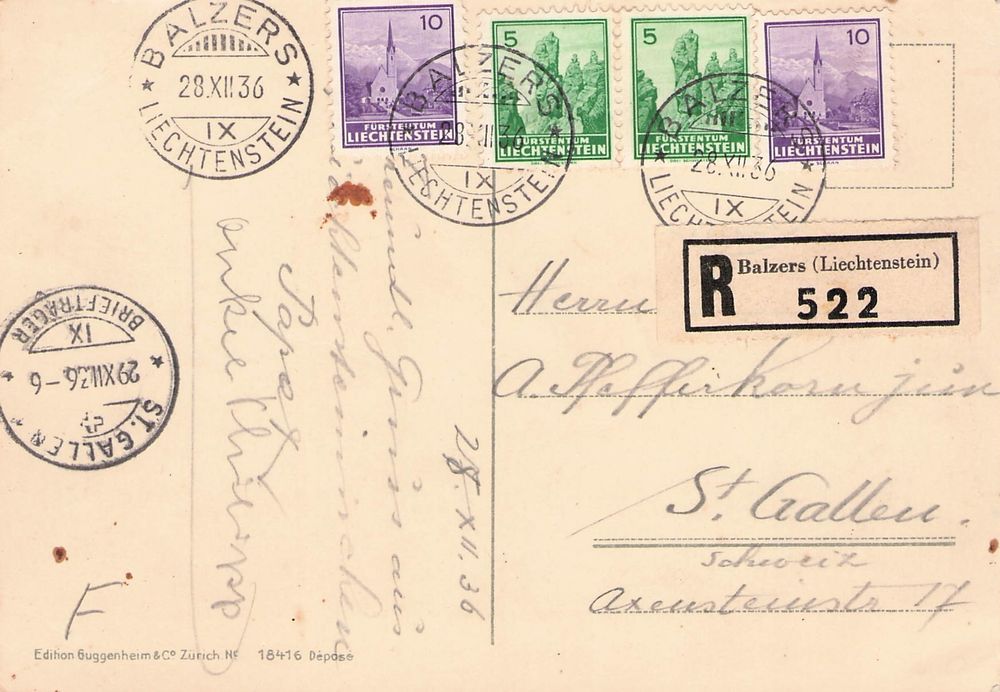 BALZERS
28.XII.36
IX
LIECHTENSTEIN
10
FÜRSTENTUM
LIECHTENSTEIN
5
FÜRSTENTUM
LIECHTENSTEIN
5
FÜRSTENTUM
LIECHTENSTEIN
10
FÜRSTENTUM
LIECHTENSTEIN
BALZERS
28.XII.36
IX
LIECHTENSTEIN
BALZERS
28.XII.36
IX
LIECHTENSTEIN
R
Balzers (Liechtenstein)
522
BRIEFTRÄGER
IX
29.XII.36-6
ST. GALLEN
28. XII. 36
aus
Herrn
A. Pfefferkorn jun
St. Gallen.
Schweiz
Axensteinstr. 17
F
Edition Guggenheim & Co Zürich. No 18416 Déposé